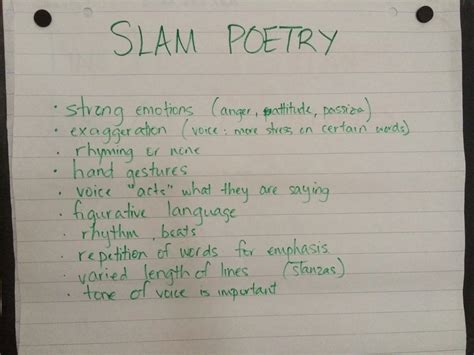 SLAM POETRY
• strong emotions (anger, attitude, passion)
• exaggeration (voice: more stress on certain words)
• rhyming or none
• hand gestures
• voice "acts" what they are saying
• figurative language
• rhythm, beats
• repetition of words for emphasis
• varied length of lines (stanzas)
• tone of voice is important